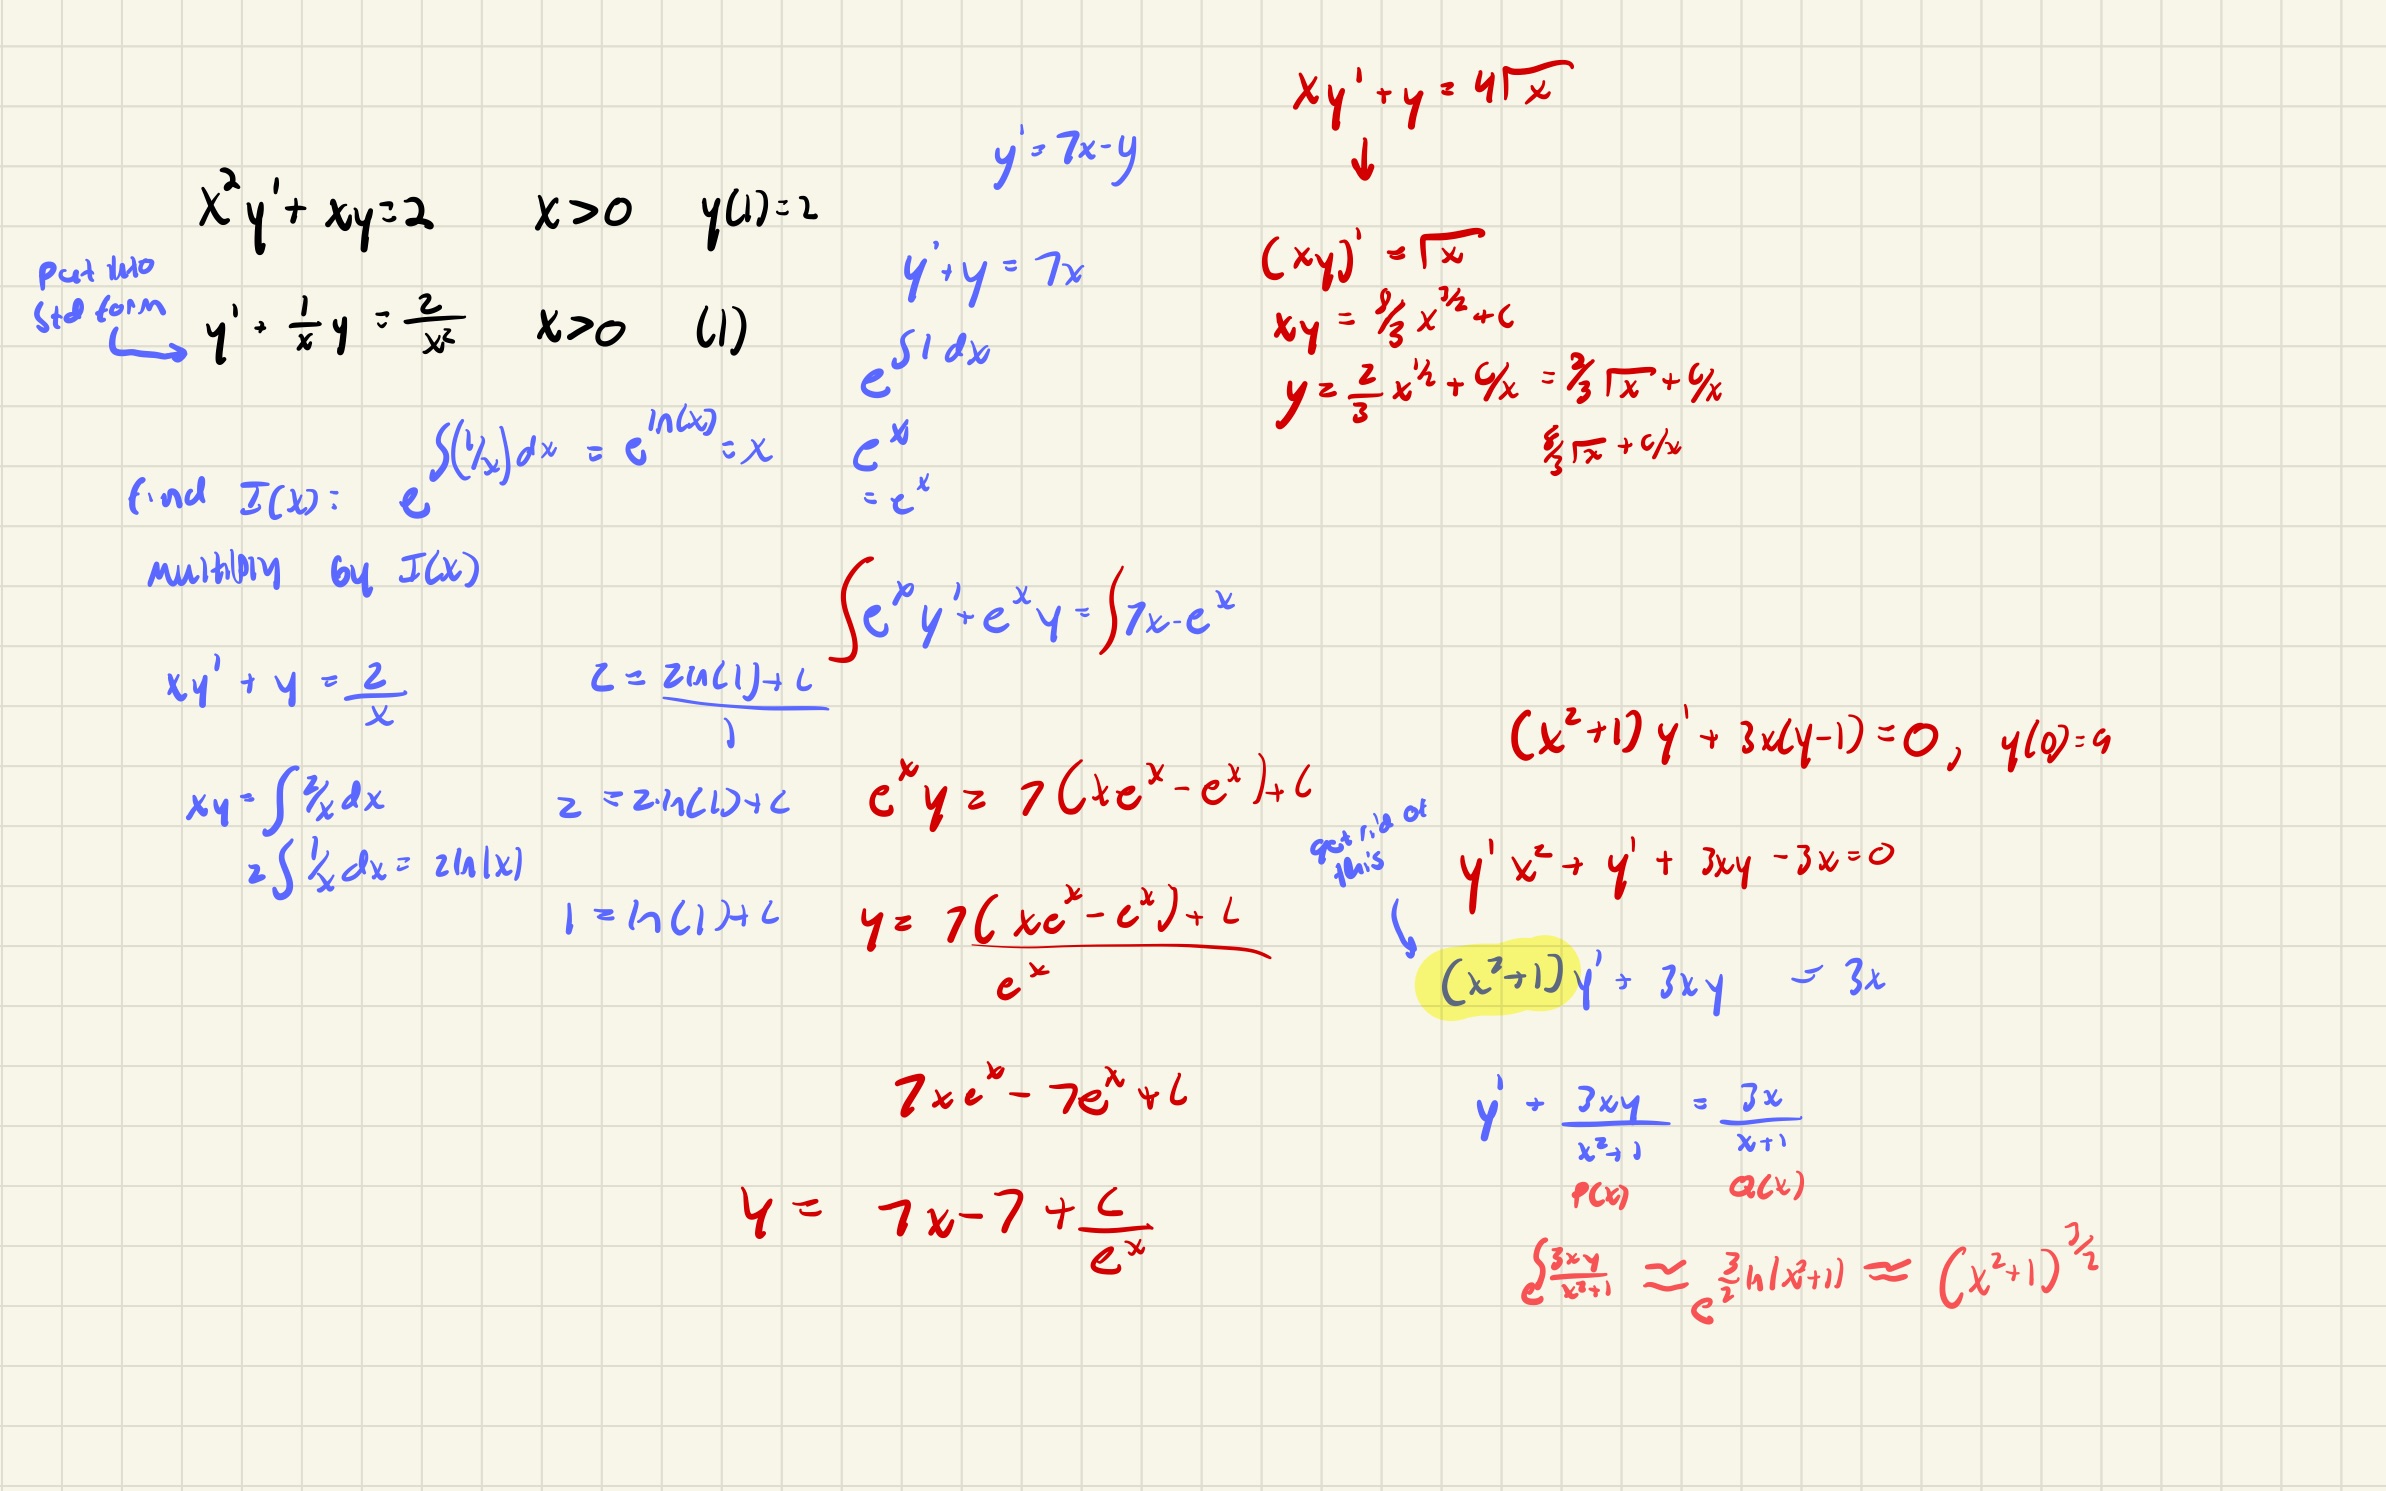 x² y' + xy = 2    x > 0    y(1) = 2
put into
std form
y' + 1/x y = 2/x²    x > 0    (1)
find I(x): e^∫(1/x)dx = e^ln(x) = x
multiply by I(x)
xy' + y = 2/x
xy = ∫ 2/x dx
2∫ 1/x dx = 2ln|x)
2 = (2ln(1) + C)/1
2 = 2·ln(1) + C
1 = ln(1) + C
y' = 7x - y
y' + y = 7x
e^∫1 dx
e^x
= e^x
∫e^x y' + e^x y = ∫7x - e^x
e^x y = 7(xe^x - e^x) + C
y = 7(xe^x - e^x) + C / e^x
7xe^x - 7e^x + C
y = 7x - 7 + C/e^x
xy' + y = 4√x
↓
(xy)' = √x
xy = 8/3 x^3/2 + C
y = 2/3 x^1/2 + C/x = 2/3 √x + C/x
8/3 √x + C/x
(x²+1) y' + 3x(y-1) = 0, y(0) = 9
y' x² + y' + 3xy - 3x = 0
get rid of
this
(x²+1) y' + 3xy = 3x
y' + 3xy/(x²+1) = 3x/(x+1)
P(x)    Q(x)
e^∫3xy/(x²+1) ≈ e^3/2 ln|x²+1) ≈ (x²+1)^3/2